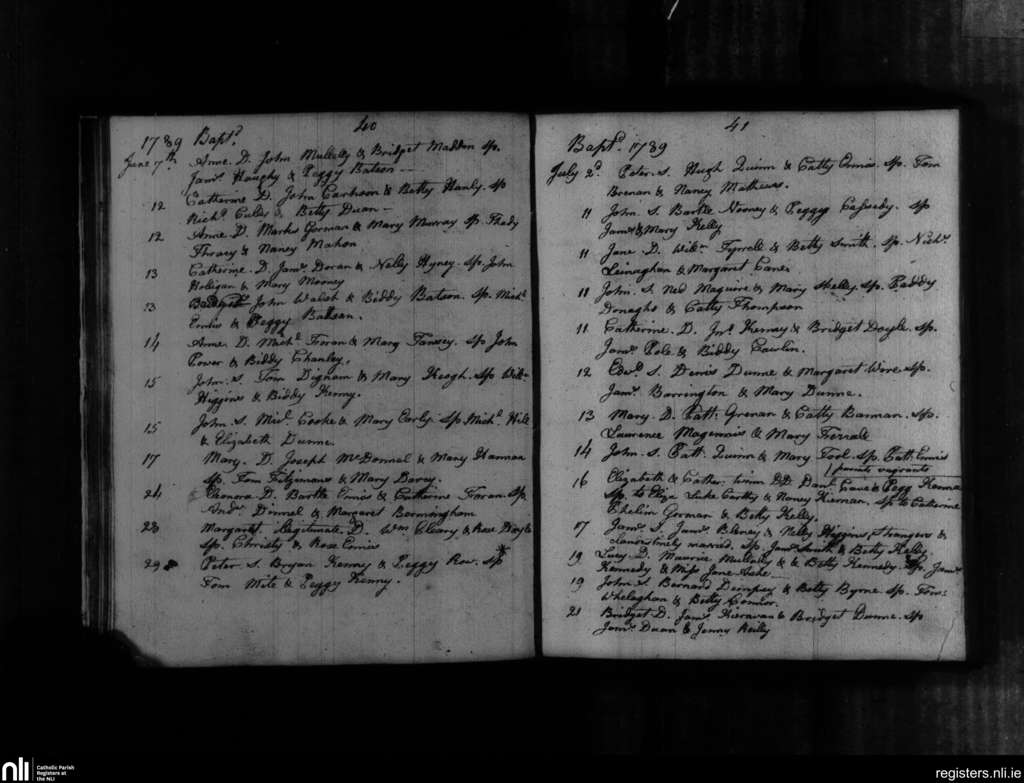 40
1789 Bapt.d
June 7th Anne. D. John Mullally & Bridget Madden Sp.
Jam.s Haughy & Peggy Batson
12 Catherine D. John & Betty Hanly. Sp
Rich.d & Betty Duan
12 Anne. D. Marks Gorman & Mary Murray Sp. Thady
& Nancy Mahon
13 Catherine. D. Jam.s Doran & Nelly Hyney. Sp. John
Holigan & Mary Mooney
13 John Walsh & Biddy Batson. Sp. Mich.l
Ennis & Peggy Batson.
14 Anne. D. Mich.l Foran & Mary Tansey. Sp John
Power & Biddy Chanley.
15 John. S. Tom Dignam & Mary Keogh. Sp Wil.m
Higgins & Biddy Kenny.
15 John. S. Mic.l Cooke & Mary Early. Sp. Mich.l Hill
& Elizabeth Dunne.
17 Mary. D. Joseph McDonnel & Mary Hannan
Sp. Tom Fitzimans & Mary Darcy.
24 Elenora D. Bartle Ennis & Catherine Foran. Sp.
And.w Dinnel & Margaret Bermingham
28 Margaret illegitimate. D. Wm Cleary & Rose Doyle
Sp. Christy & Rose Ennis
29 Peter. S. Bryan Kenny & Peggy Row. Sp
Tom Mite & Peggy Kenny.
41
Bapt.d 1789
July 2d. Peter. S. Hugh Quinn & Catty Ennis. Sp. Tom
Brenan & Nancy Mathews.
11 John. S. Bartle Nooney & Peggy Cassedy. Sp
Jam.s & Mary Kelly
11 Jane D. Wil.m Tyrrell & Betty Smith. Sp. Nich.s
Leinaghan & Margaret Cane.
11 John. S. Ned Maguire & Mary Shelly. Sp. Paddy
Donaghs & Catty Thompson
11 Catherine. D. Jn.o Kernay & Bridget Doyle. Sp.
Jam.s Pole & Biddy Cawlin.
12 Edw.d S. Denis Dunne & Margaret Wire. Sp.
Jam.s Barrington & Mary Dunne.
13 Mary. D. Patt. Grenan & Catty Banman. Sp.
Lawrence Magennis & Mary Ferrall
14 John. S. Patt. Quinn & Mary Tool. Sp. Patt. Ennis
parents vagrants
16 Elizabeth & Cather. twin DD Dan.l & Pegg
Sp. to Eliza Luke Carthy & Nancy Kiernan. Sp to Catherine
Phelin Gorman & Betty Kelly.
17 Jam.s S. Jam.s Bleney & Nelly Higgins, Strangers &
clandestinely married. Sp. Jam.s Smith & Betty Kelly.
19 Lucy D. Maurice Mullally & Betty Kennedy. Sp. Jam.s
Kennedy & Miss Jane Ashe
19 John. S. Bernard Dempsey & Betty Byrne Sp. Tom:
Whelaghan & Betty Connor.
21 Bridget D. Jam.s Kieravan & Bridget Dunne. Sp
Jam.s Duan & Jenny Reilly
nli
Catholic Parish
Registers at
the NLI
registers.nli.ie